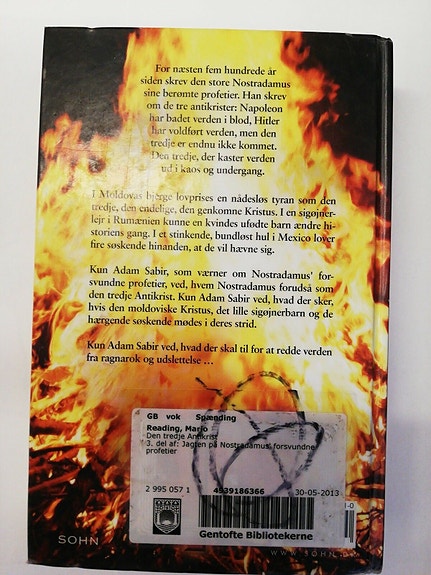 For næsten fem hundrede år
siden skrev den store Nostradamus
sine berømte profetier. Han skrev
om de tre antikrister: Napoleon
har badet verden i blod, Hitler
har voldført verden, men den
tredje er endnu ikke kommet.
Den tredje, der kaster verden
ud i kaos og undergang.
I Moldovas bjerge lovprises en nådesløs tyran som den
tredje, den endelige, den genkomne Kristus. I en sigøjner-
lejr i Rumænien kunne en kvindes ufødte barn ændre hi-
storiens gang. I et stinkende, bundløst hul i Mexico lover
fire søskende hinanden, at de vil hævne sig.
Kun Adam Sabir, som værner om Nostradamus' for-
svundne profetier, ved, hvem Nostradamus forudså som
den tredje Antikrist. Kun Adam Sabir ved, hvad der sker,
hvis den moldoviske Kristus, det lille sigøjnerbarn og de
hærgende søskende mødes i deres strid.
Kun Adam Sabir ved, hvad der skal til for at redde verden
fra ragnarok og udslettelse ...
GB vok Spænding
Reading, Mario
Den tredje Antikrist
3. del af: Jagten på Nostradamus' forsvundne
profetier
2 995 057 1 4939186366 30-05-2013
Gentofte Bibliotekerne
SOHN